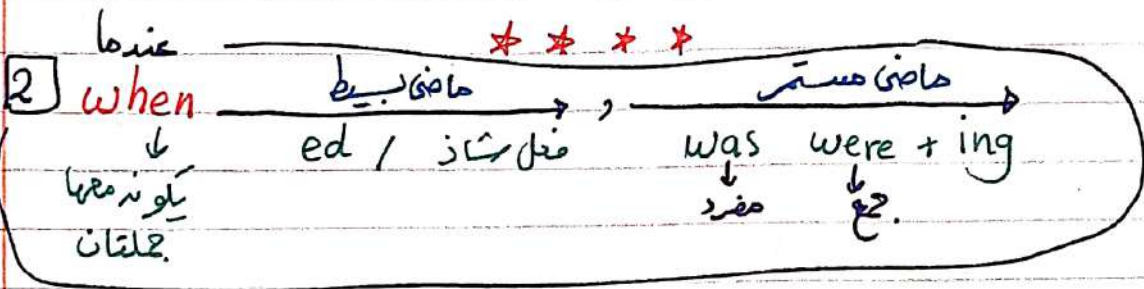 عندما
2 when ماضي بسيط , ماضي مستمر
ed / فعل شاذ was were + ing
يكون معها مفرد جمع.
جملتان.